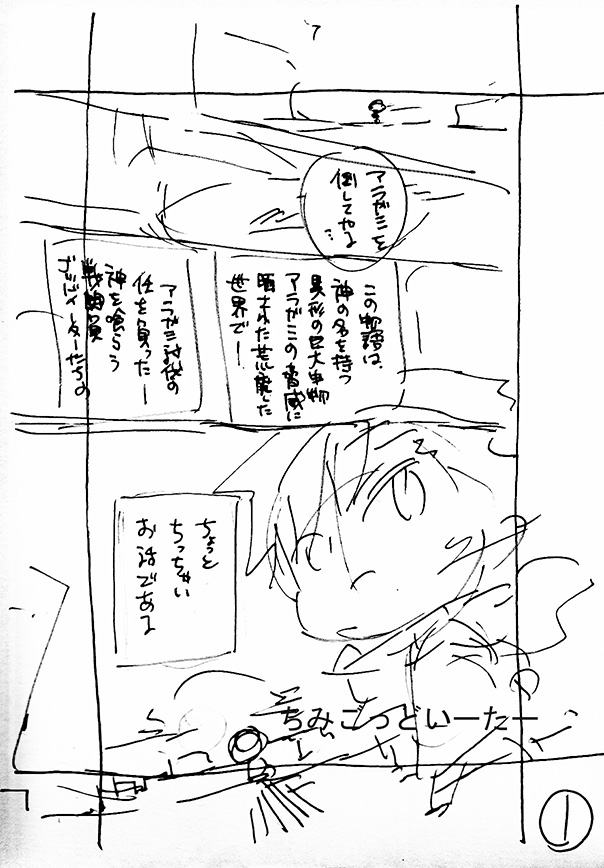 アラガミを
倒してやる
…
この物語は、
神の名を持つ
異形の巨大生物
アラガミの脅威に
晒された荒廃した
世界で―
アラガミ討伐の
任を負った―
神を喰らう
戦闘員
ゴッドイーターたちの
ちょっと
ちっちゃい
お話である
ちみごっどいーたー
1